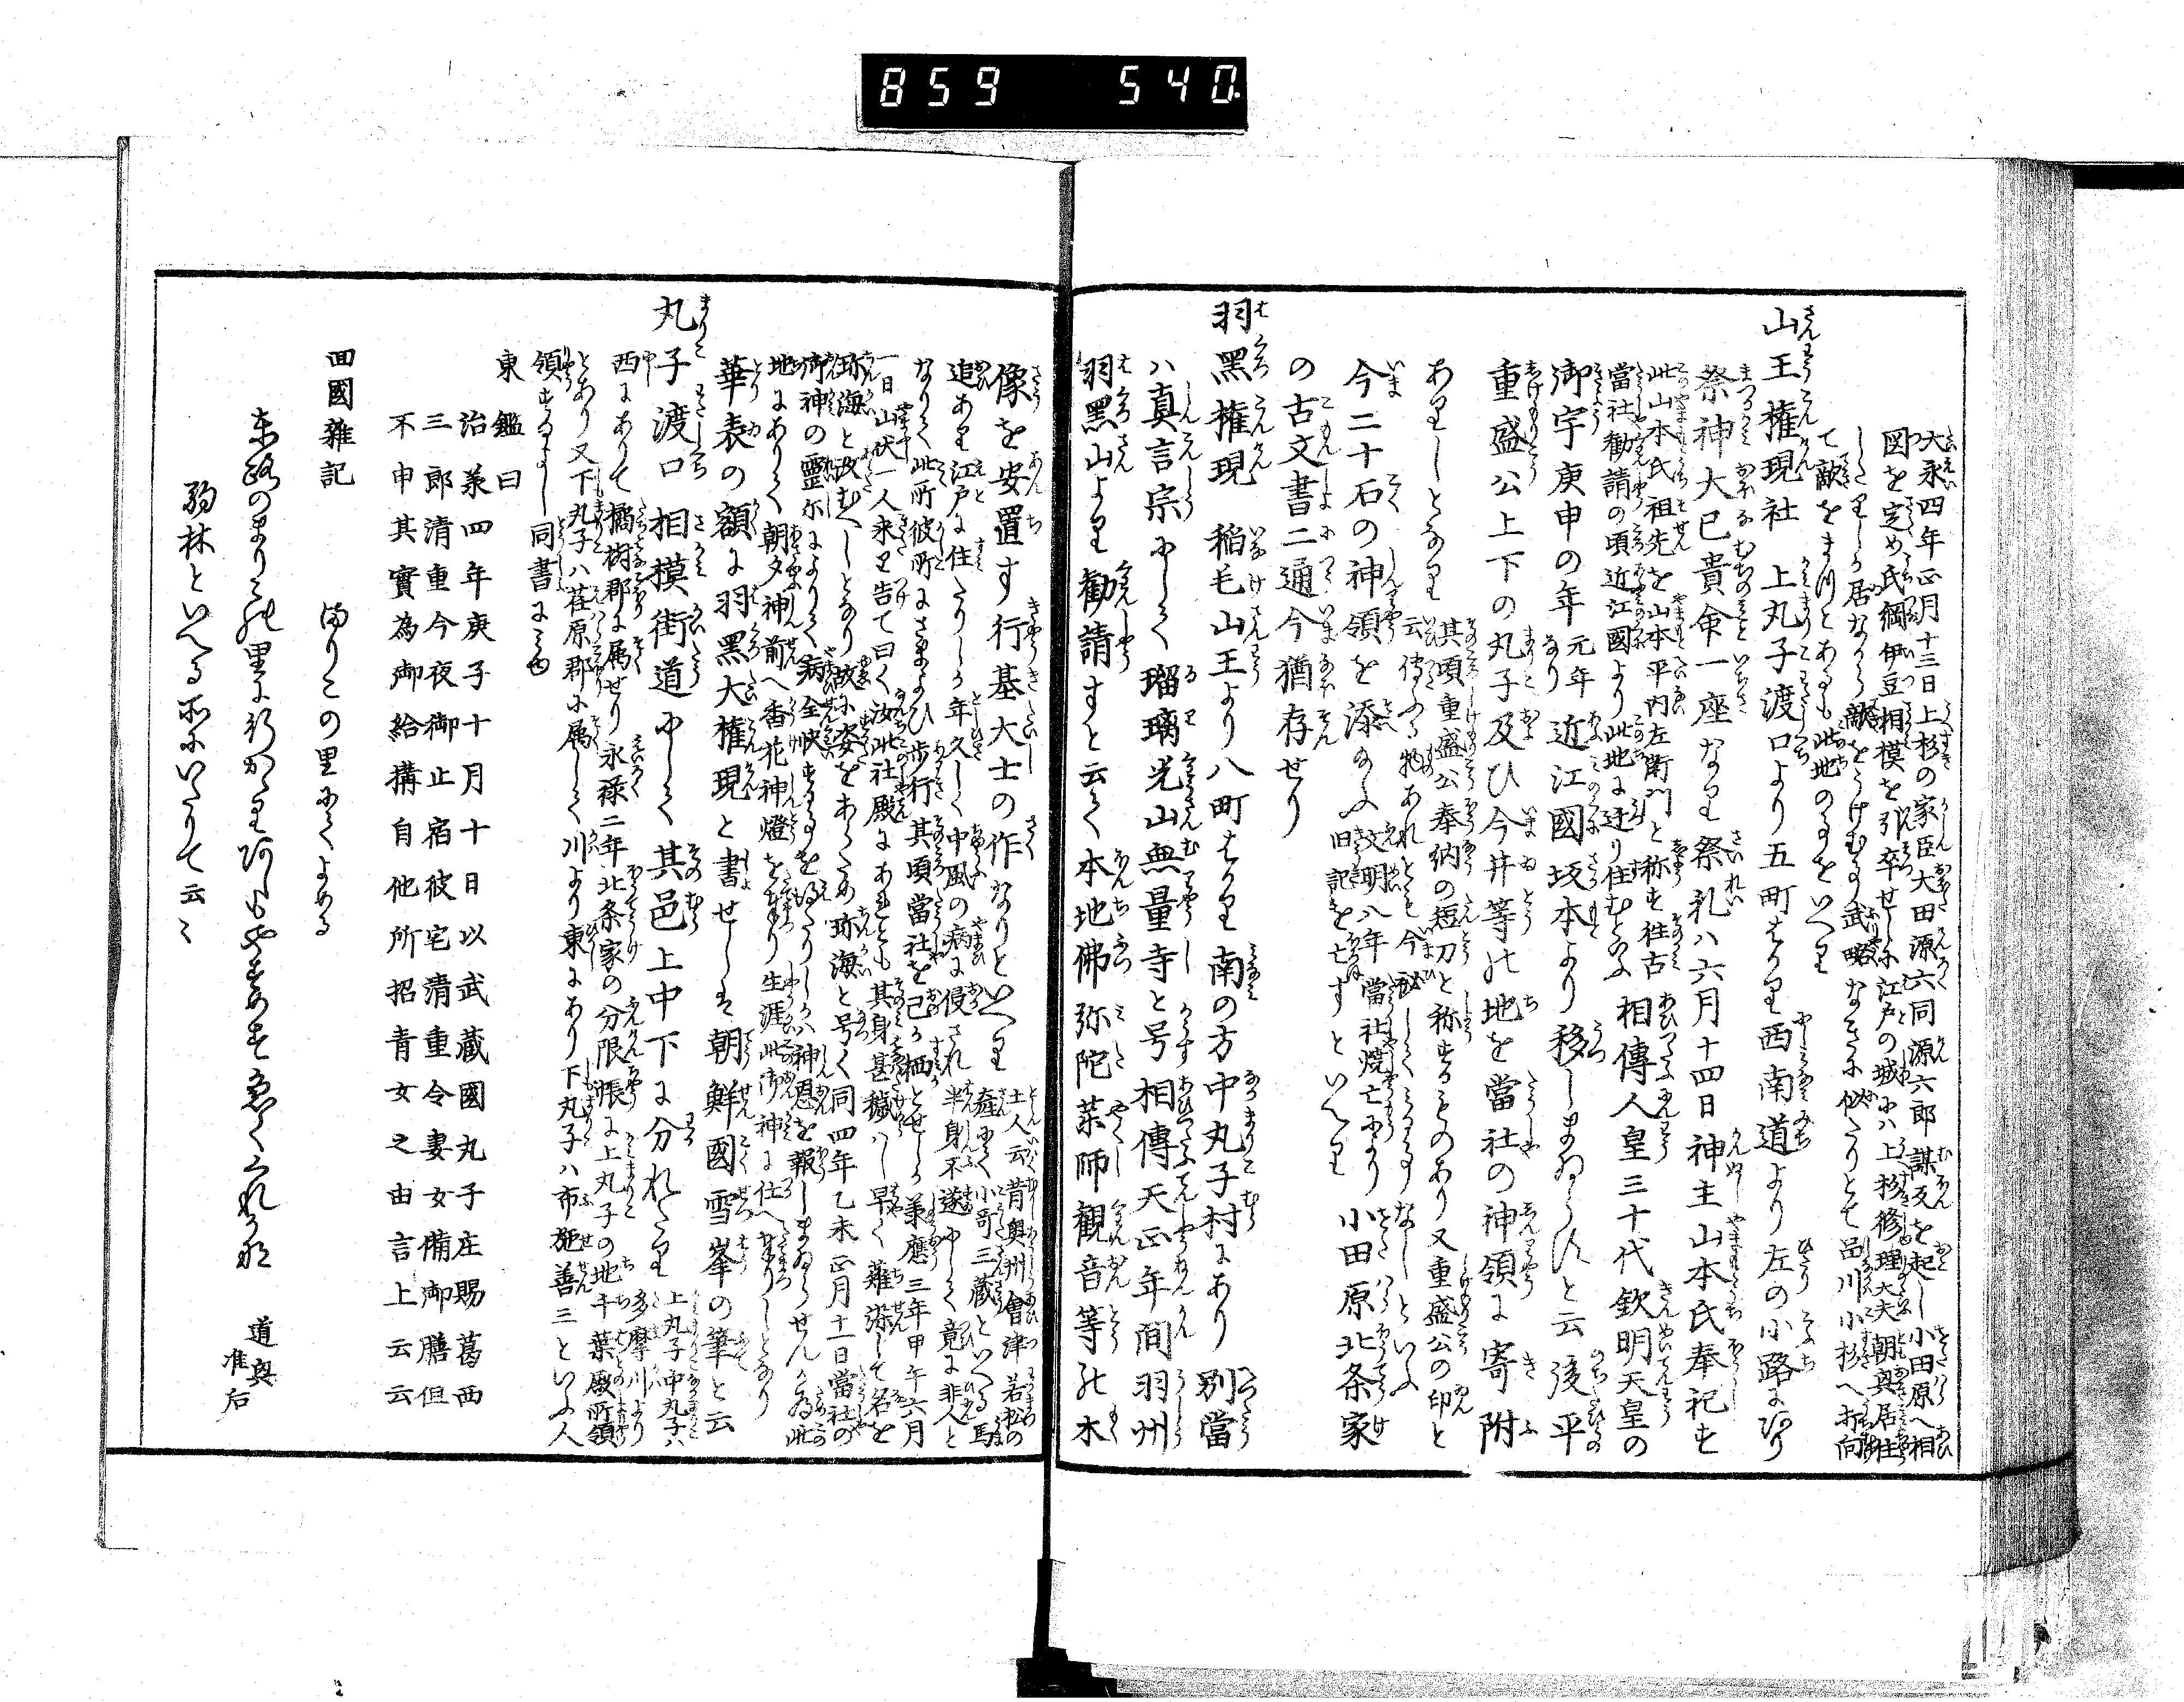 859 540
大永四年正月十三日上杉の家臣大田源六同源六郎謀反を起し小田原へ相
図を定め氏綱伊豆相模を引卒せしに江戸の城にハ上杉修理大夫朝興居住
したりしか居なから敵をうけむハ武略なきに似たりとて品川小杉へ打向
て敵をま川とあるも此地の事をいへり
山王権現社 上丸子渡口より五町はかり西南道より左の小路にあり
祭神大已貴命一座なり祭礼ハ六月十四日神主山本氏奉祀す
此山本氏祖先を山本平内左衛門と称す往古
當社勧請の頃近江國より此地に迁り住むといふ
相傳人皇三十代欽明天皇の
御宇庚申の年元年なり近江國坂本より移しまゐらすと云後平
重盛公上下の丸子及ひ今井等の地を當社の神領に寄附
ありしとなり
其頃重盛公奉納の短刀と称するものあり又重盛公の印と
云傳ふる物あれとも今秘しくみる事なしといふ
小田原北条家
今二十石の神領を添なふ
文明八年當社焼亡にあり
旧記を亡すといへり
の古文書二通今猶存せり
羽黒権現 稲毛山王より八町はかり南の方中丸子村にあり別當
ハ真言宗にして瑠璃光山無量寺と号相傳天正年間羽州
羽黒山より勧請すと云く本地佛弥陀薬師観音等の木
像を安置す行基大士の作なりといへり
土人云昔奥州會津若松の
産にて小哥三蔵といへる馬
追あり江戸に住たりしか年久しく中風の病に侵され半身不遂にして竟に非人と
なりて此所彼所にさまよひ歩行其頃當社を己か栖とせしか承應三年甲午六月
一日山伏一人来り告て曰く汝此社殿にあれとも其身甚穢ハし早く薙染して名を
珎海と改むへしとなり故に姿をあらため珎海と号く同四年乙未正月十一日當社の
御神の霊尓によりて病全快する事を得たりしかハ神恩を報しまゐらせんか為此
地にありて朝夕神前へ香花神燈をたてまつり生涯此御神に仕へ奉りしとなり
華表の額に羽黒大権現と書せしは朝鮮國雪峯の筆と云
丸子渡口 相模街道にして其邑上中下に分れたり
上丸子中丸子ハ
多摩川より
西にありて橘樹郡に属せり永禄二年北条家の分限帳に上丸子の地千葉殿所領
とあり又下丸子ハ荏原郡に属して川より東にあり下丸子ハ布施善三といふ人
領するよし同書にミゆ
東鑑曰
治承四年庚子十月十日以武蔵國丸子庄賜葛西
三郎清重今夜御止宿彼宅清重令妻女備御膳但
不申其實為御給搆自他所招青女之由言上云云
回國雑記
まりこの里にてよめる
東路のまりこの里に行かゝりあしもやすめすいそくくれかな 道興准后
駒林といへる所にいたりて云々